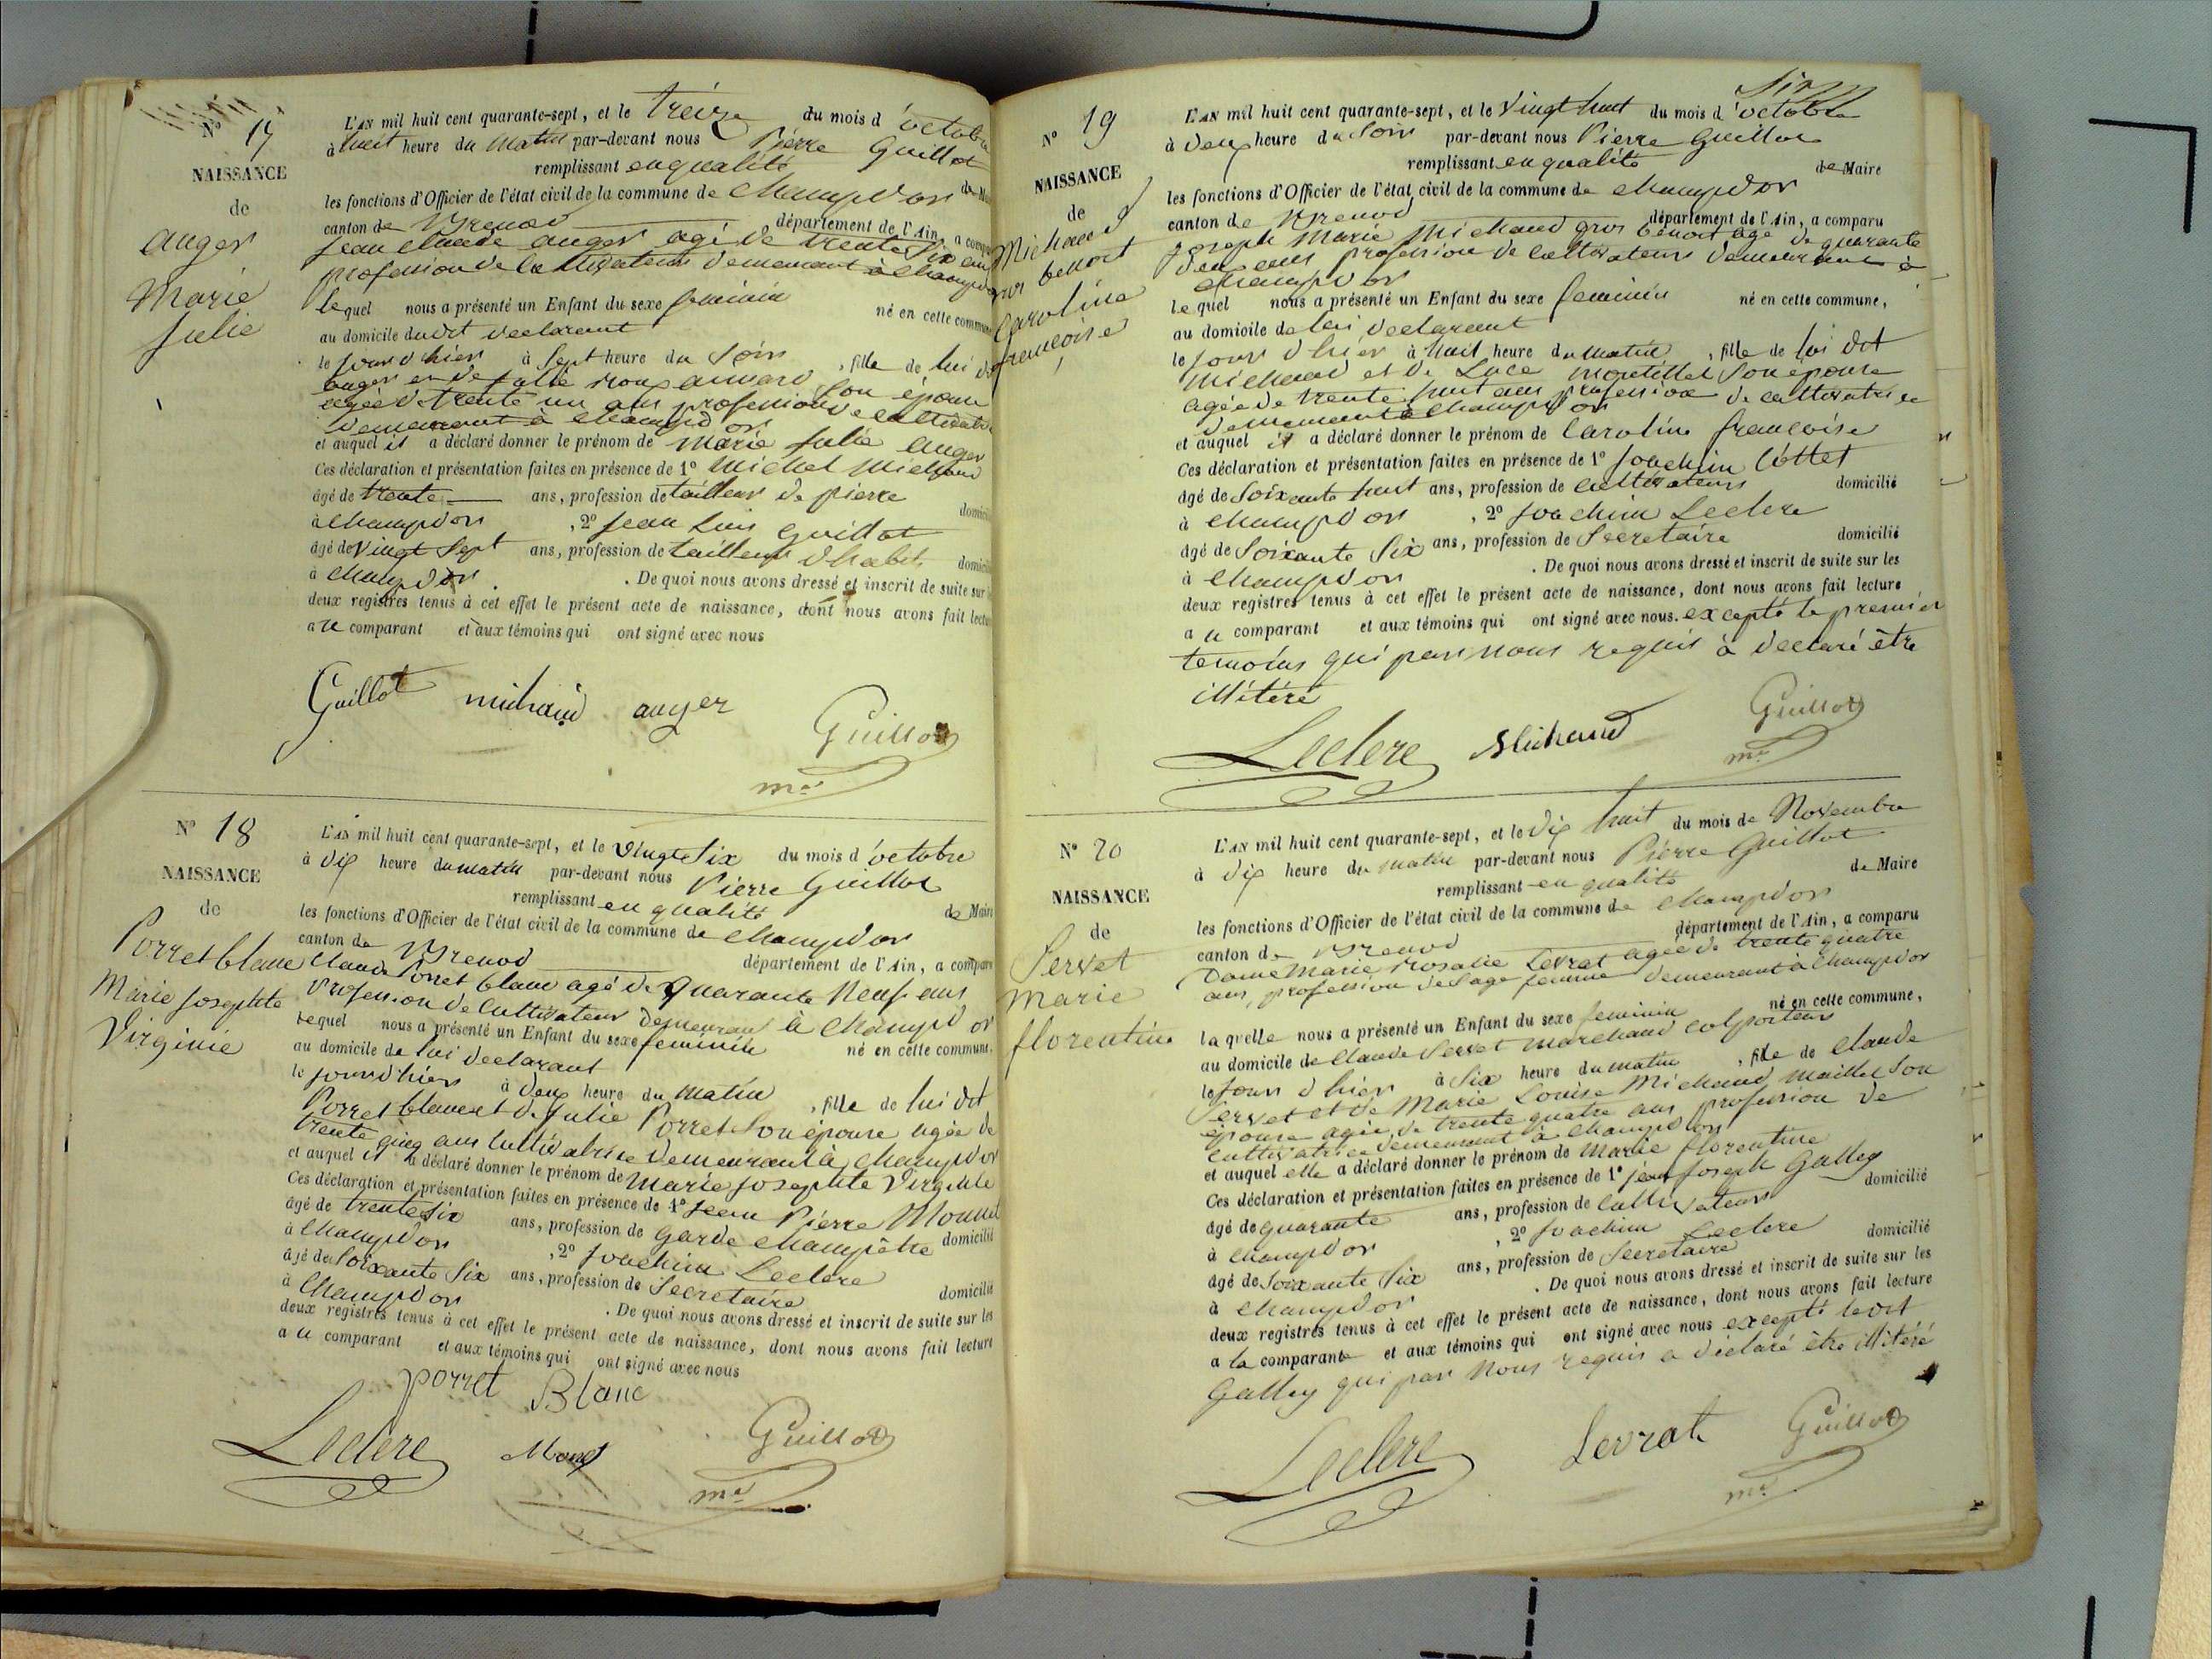 Nº 17
NAISSANCE
de
auger
Marie
Julie
L'AN mil huit cent quarante-sept, et le treize du mois d'octobre
à huit heure du matin par-devant nous Pierre Guillot
remplissant en qualité de Maire
les fonctions d'Officier de l'état civil de la commune de Champdor
canton de Brenod département de l'Ain, a comparu
Jean Claude auger agé de trente six ans
profession de Cultivateur demeurant à Champdor
lequel nous a présenté un Enfant du sexe feminin né en cette commune
au domicile du dit declarant
le jour d hier à Sept heure du Soir, fille de lui dit
auger et de Julie son épouse
agée de trente un ans profession de cultivatrice
demeurant à Champdor
et auquel il a déclaré donner le prénom de Marie Julie auger
Ces déclaration et présentation faites en présence de 1º Michel Michaud
âgé de trente ans, profession de tailleur de pierre domicilié
à Champdor, 2º Jean Luis Guillot
âgé de vingt Sept ans, profession de tailleur d'habit domicilié
à Champdor. De quoi nous avons dressé et inscrit de suite sur les
deux registres tenus à cet effet le présent acte de naissance, dont nous avons fait lecture
a u comparant et aux témoins qui ont signé avec nous
Guillot michaud auger Guillot
mre
Nº 18
NAISSANCE
de
Porret blanc
Marie Josephte
Virginie
L'AN mil huit cent quarante-sept, et le vingt Six du mois d'octobre
à dix heure du matin par-devant nous Pierre Guillot
remplissant en qualité de Maire
les fonctions d'Officier de l'état civil de la commune de Champdor
canton de Brenod département de l'Ain, a comparu
Claude Porret blanc agé de quarante Neuf ans
Profession de Cultivateur demeurant à Champdor
lequel nous a présenté un Enfant du sexe feminin né en cette commune,
au domicile de lui declarant
le jour d'hier à deux heure du matin, fille de lui dit
Porret blanc et de Julie Porret Son épouse agée de
trente cinq ans Cultivatrice demeurant à Champdor
et auquel il a déclaré donner le prénom de Marie Josephte Virginie
Ces déclaration et présentation faites en présence de 1º Jean Pierre Monnet
âgé de trente Six ans, profession de Garde Champêtre domicilié
à Champdor, 2º Joachim Leclere
âgé de Soixante Six ans, profession de Secretaire domicilié
à Champdor. De quoi nous avons dressé et inscrit de suite sur les
deux registres tenus à cet effet le présent acte de naissance, dont nous avons fait lecture
a u comparant et aux témoins qui ont signé avec nous
porret Blanc
Leclere Monet Guillot
mre
Nº 19
NAISSANCE
de
Michaud
gros benoit
Caroline
francoise
L'AN mil huit cent quarante-sept, et le vingt huit du mois d'octobre
à deux heure du Soir par-devant nous Pierre Guillot
remplissant en qualité de Maire
les fonctions d'Officier de l'état civil de la commune de Champdor
canton de Brenod département de l'Ain, a comparu
Joseph Marie Michaud gros benoit agé de quarante
deux ans profession de Cultivateur demeurant à
Champdor
lequel nous a présenté un Enfant du sexe feminin né en cette commune,
au domicile de lui declarant
le Jour d hier à huit heure du matin, fille de lui dit
Michaud et de Luce Montillet Son épouse
agée de trente huit ans profession de cultivatrice
demeurant à Champdor
et auquel il a déclaré donner le prénom de Caroline francoise
Ces déclaration et présentation faites en présence de 1º Joachim Cottet
âgé de Soixante huit ans, profession de Cultivateur domicilié
à Champdor, 2º Joachim Leclere
âgé de Soixante Six ans, profession de Secretaire domicilié
à Champdor. De quoi nous avons dressé et inscrit de suite sur les
deux registres tenus à cet effet le présent acte de naissance, dont nous avons fait lecture
a u comparant et aux témoins qui ont signé avec nous. excepté le premier
temoins qui par nous requis à declaré être
illitéré
Leclere Michaud Guillot
mre
Nº 20
NAISSANCE
de
Servet
Marie
florentine
L'AN mil huit cent quarante-sept, et le dix huit du mois de Novembre
à dix heure du matin par-devant nous Pierre Guillot
remplissant en qualité de Maire
les fonctions d'Officier de l'état civil de la commune de Champdor
canton de Brenod département de l'Ain, a comparu
Dame Marie Rosalie Levrat agée de trente quatre
ans, profession de Sage femme demeurant à Champdor
laquelle nous a présenté un Enfant du sexe feminin né en cette commune,
au domicile de Claude Servet marchand colporteur
le Jour d hier à Six heure du matin, fille de Claude
Servet et de Marie Louise Michaud Maillet Son
épouse agée de trente quatre ans profession de
Cultivatrice demeurant à Champdor
et auquel elle a déclaré donner le prénom de Marie florentine
Ces déclaration et présentation faites en présence de 1º jean Joseph Galley
âgé de quarante ans, profession de Cultivateur domicilié
à Champdor, 2º Joachim Leclere
âgé de Soixante Six ans, profession de Secretaire domicilié
à Champdor. De quoi nous avons dressé et inscrit de suite sur les
deux registres tenus à cet effet le présent acte de naissance, dont nous avons fait lecture
a la comparante et aux témoins qui ont signé avec nous excepté ledit
Galley qui par Nous requis a déclaré être illitéré
Leclere Levrat Guillot
mre